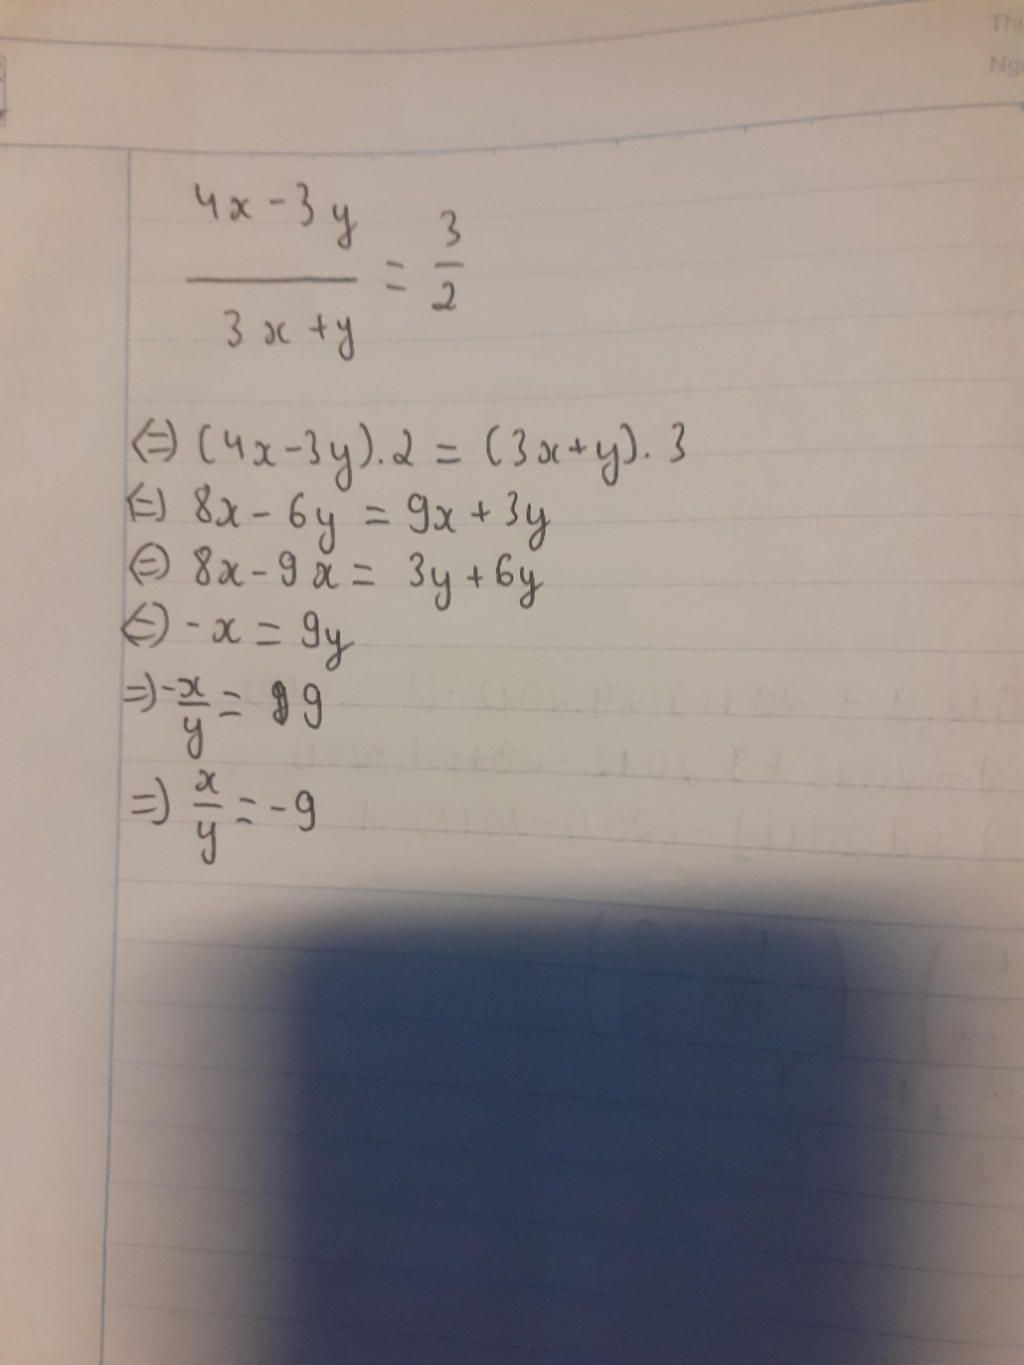 4x - 3y / 3x + y = 3/2
⇔ (4x - 3y) . 2 = (3x + y) . 3
⇔ 8x - 6y = 9x + 3y
⇔ 8x - 9x = 3y + 6y
⇔ - x = 9y
⇒ - x/y = 9
⇒ x/y = - 9